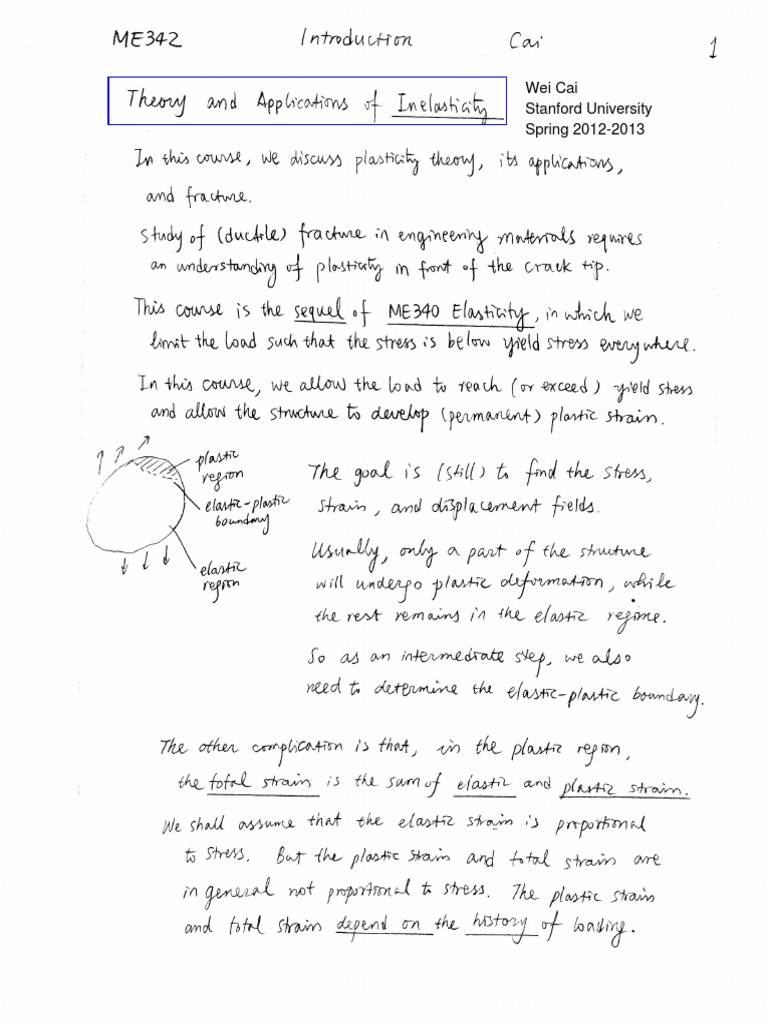 ME342 Introduction Cai 1
Theory and Applications of Inelasticity
Wei Cai
Stanford University
Spring 2012-2013
In this course, we discuss plasticity theory, its applications,
and fracture.
Study of (ductile) fracture in engineering materials requires
an understanding of plasticity in front of the crack tip.
This course is the sequel of ME340 Elasticity, in which we
limit the load such that the stress is below yield stress everywhere.
In this course, we allow the load to reach (or exceed) yield stress
and allow the structure to develop (permanent) plastic strain.
plastic
region
elastic-plastic
boundary
elastic
region
The goal is (still) to find the stress,
strain, and displacement fields.
Usually, only a part of the structure
will undergo plastic deformation, while
the rest remains in the elastic regime.
So as an intermediate step, we also
need to determine the elastic-plastic boundary.
The other complication is that, in the plastic region,
the total strain is the sum of elastic and plastic strain.
We shall assume that the elastic strain is proportional
to stress. But the plastic strain and total strain are
in general not proportional to stress. The plastic strain
and total strain depend on the history of loading.